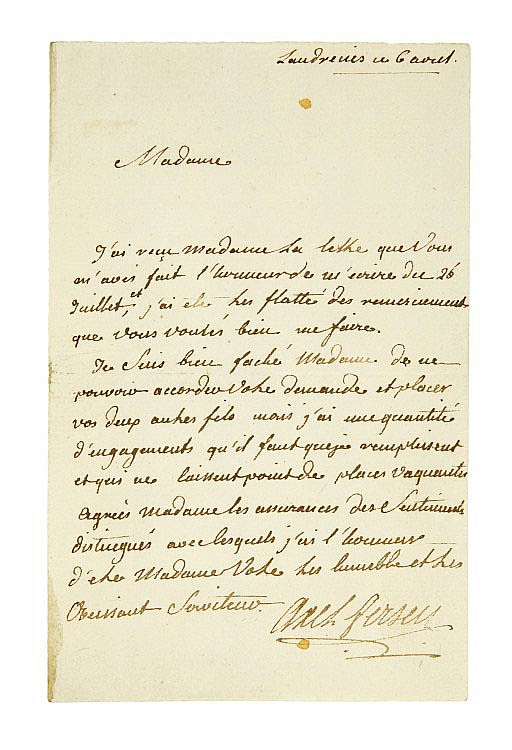 Landrecies ce 6 aout.
Madame
J'ai reçu Madame la lettre que Vous
m'avés fait l'honneur de m'écrire du 26
Juillet, et j'ai ete tres flatté des remerciement
que Vous voulés bien me faire.
Je Suis bien faché Madame de ne
pouvoir accorder Votre demande et placer
vos deux autres fils mais j'ai une quantité
d'engagements qu'il faut que je remplissent
et qui ne laissent point de places vaquantes
agreés Madame les assurances des Sentiments
distingués avec lesquels j'ai l'honneur
d'etre Madame Votre tres humble et tres
Obeissant Serviteur.
Axel fersen